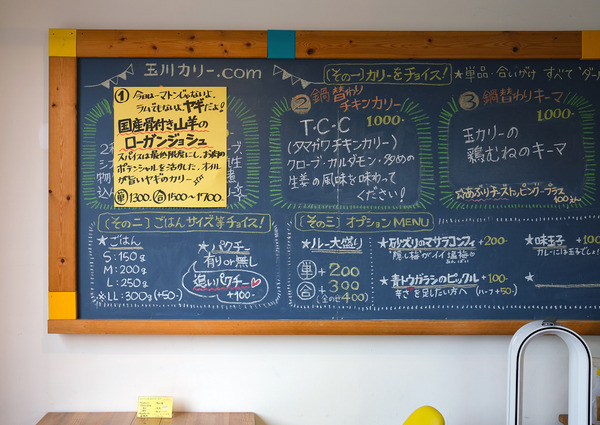 玉川カリー.com
(その一)カリーをチョイス!
★単品・合いがけ すべて
① 今日はマトンじゃないよ。
ラムでもないよ。ヤギだよ!
国産骨付き山羊の
ローガンジョシュ
スパイスは最低限度にし、お肉の
ポテンシャルを活かした、オイル
が旨いヤギのカリー
単1300. 合1500〜1700.
② 鍋替わり
チキンカリー
1000-
T・C・C
(タマガワチキンカリー)
クローブ・カルダモン・多めの
生姜の風味を味わって
ください!
③ 鍋替わりキーマ
1000-
玉カリーの
鶏むねのキーマ
☆あぶりチーズトッピングプラス
100えん
(その二)ごはんサイズ等チョイス!
★ごはん
S:150g
M:200g
L:250g
※LL:300g(+50-)
★パクチー
有り or 無し
追いパクチー♡
+100-
(その三)オプションMENU
★ルー大盛り
単+200
合+300
(全のせ400)
★砂ズリのマサラコンフィ +200-
隠し梅がイイ塩梅
★青トウガラシのピックル +100-
辛さを足したい方へ (ハーフ+50-)
★味玉子 +100-
カレーには玉子でしょ!